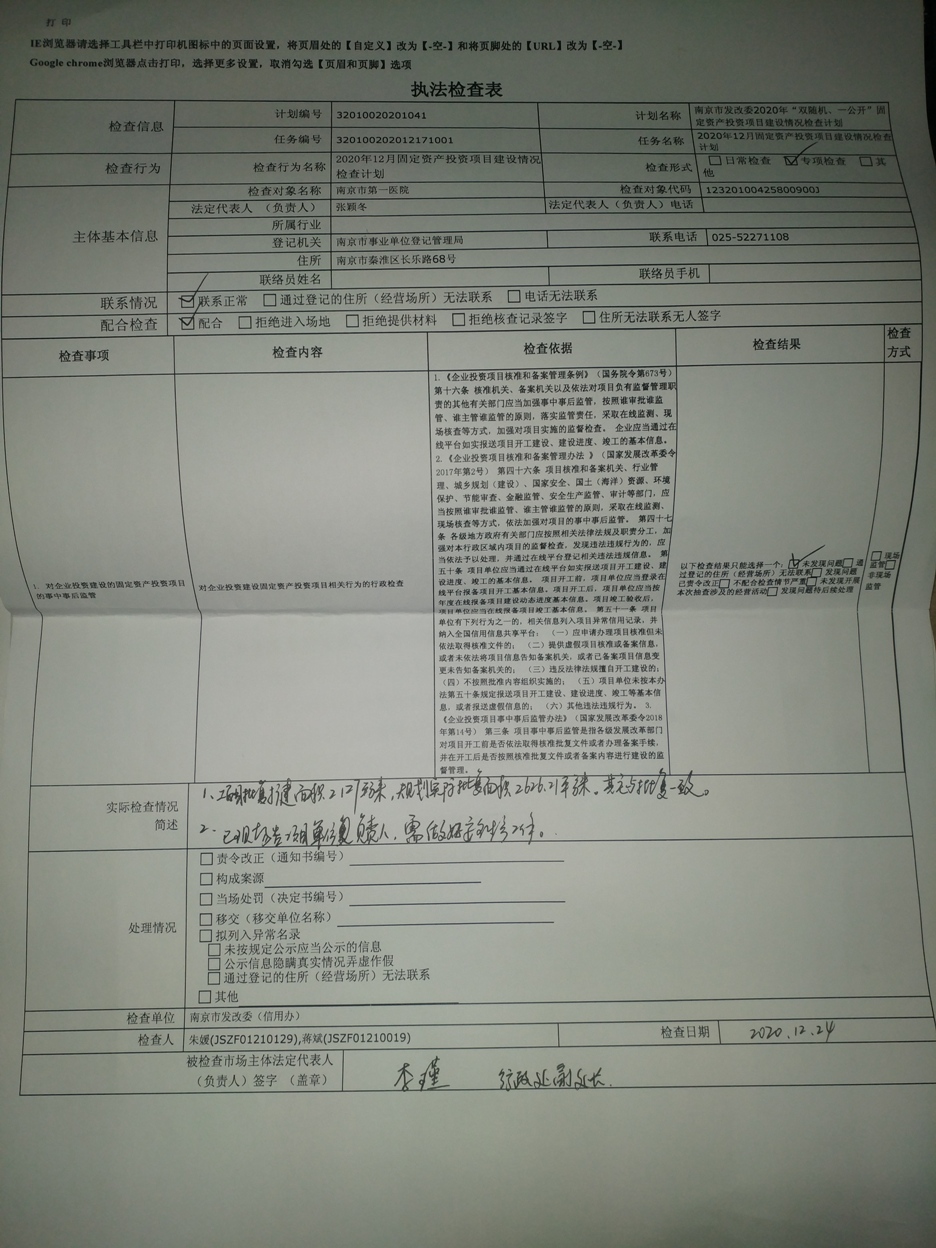 打 印
IE浏览器请选择工具栏中打印机图标中的页面设置，将页眉处的【自定义】改为【-空-】和将页脚处的【URL】改为【-空-】
Google chrome浏览器点击打印，选择更多设置，取消勾选【页眉和页脚】选项
执法检查表
检查信息
计划编号 32010020201041 计划名称 南京市发改委2020年“双随机、一公开”固
定资产投资项目建设情况检查计划
任务编号 320100202012171001 任务名称 2020年12月固定资产投资项目建设情况检查
计划
检查行为 检查行为名称 2020年12月固定资产投资项目建设情况
检查计划
检查形式 □日常检查 ☑专项检查 □其
他
主体基本信息
检查对象名称 南京市第一医院 检查对象代码 12320100425800900J
法定代表人（负责人） 张颖冬 法定代表人（负责人）电话
所属行业
登记机关 南京市事业单位登记管理局 联系电话 025-52271108
住所 南京市秦淮区长乐路68号
联络员姓名 联络员手机
联系情况 ☑联系正常 □通过登记的住所（经营场所）无法联系 □电话无法联系
配合检查 ☑配合 □拒绝进入场地 □拒绝提供材料 □拒绝核查记录签字 □住所无法联系无人签字
检查事项 检查内容 检查依据 检查结果 检查
方式
1. 对企业投资建设的固定资产投资项目
的事中事后监管
对企业投资建设固定资产投资项目相关行为的行政检查
1.《企业投资项目核准和备案管理条例》（国务院令第673号）
第十六条 核准机关、备案机关以及依法对项目负有监督管理职
责的其他有关部门应当加强事中事后监管，按照谁审批谁监
管、谁主管谁监管的原则，落实监管责任，采取在线监测、现
场核查等方式，加强对项目实施的监督检查。 企业应当通过在
线平台如实报送项目开工建设、建设进度、竣工的基本信息。
2.《企业投资项目核准和备案管理办法 》（国家发展改革委令
2017年第2号） 第四十六条 项目核准和备案机关、行业管
理、城乡规划（建设）、国家安全、国土（海洋）资源、环境
保护、节能审查、金融监管、安全生产监管、审计等部门，应
当按照谁审批谁监管、谁主管谁监管的原则，采取在线监测、
现场核查等方式，依法加强对项目的事中事后监管。 第四十七
条 各级地方政府有关部门应按照相关法律法规及职责分工，加
强对本行政区域内项目的监督检查，发现违法违规行为的，应
当依法予以处理，并通过在线平台登记相关违法违规信息。 第
五十条 项目单位应当通过在线平台如实报送项目开工建设、建
设进度、竣工的基本信息。 项目开工前，项目单位应当登录在
线平台报备项目开工基本信息。项目开工后，项目单位应当按
年度在线报备项目建设动态进度基本信息。项目竣工验收后，
项目单位应当在线报备项目竣工基本信息。 第五十一条 项目
单位有下列行为之一的，相关信息列入项目异常信用记录，并
纳入全国信用信息共享平台： （一）应申请办理项目核准但未
依法取得核准文件的； （二）提供虚假项目核准或备案信息，
或者未依法将项目信息告知备案机关，或者已备案项目信息变
更未告知备案机关的； （三）违反法律法规擅自开工建设的；
（四）不按照批准内容组织实施的； （五）项目单位未按本办
法第五十条规定报送项目开工建设、建设进度、竣工等基本信
息，或者报送虚假信息的； （六）其他违法违规行为。 3.
《企业投资项目事中事后监管办法》（国家发展改革委令2018
年第14号） 第三条 项目事中事后监管是指各级发展改革部门
对项目开工前是否依法取得核准批复文件或者办理备案手续，
并在开工后是否按照核准批复文件或者备案内容进行建设的监
督管理。
以下检查结果只能选择一个：☑未发现问题□通
过登记的住所（经营场所）无法联系□ 发现问题
已责令改正□不配合检查情节严重□未发现开展
本次抽查涉及的经营活动□ 发现问题待后续处理
□ 现场
监管□
非现场
监管
实际检查情况
简述
1、项目批复扩建面积2127平方米，规划审方批复面积2626.21平方米。其它与批复一致。
2、已现场告项目单位负责人，需做好安全生产工作。
处理情况
□ 责令改正（通知书编号）
□ 构成案源
□ 当场处罚（决定书编号）
□ 移交（移交单位名称）
□ 拟列入异常名录
□ 未按规定公示应当公示的信息
□ 公示信息隐瞒真实情况弄虚作假
□ 通过登记的住所（经营场所）无法联系
□ 其他
检查单位 南京市发改委（信用办）
检查人 朱媛(JSZF01210129),蒋斌(JSZF01210019) 检查日期 2020.12.24
被检查市场主体法定代表人
（负责人）签字 （盖章） 李瑾 行政处副处长.